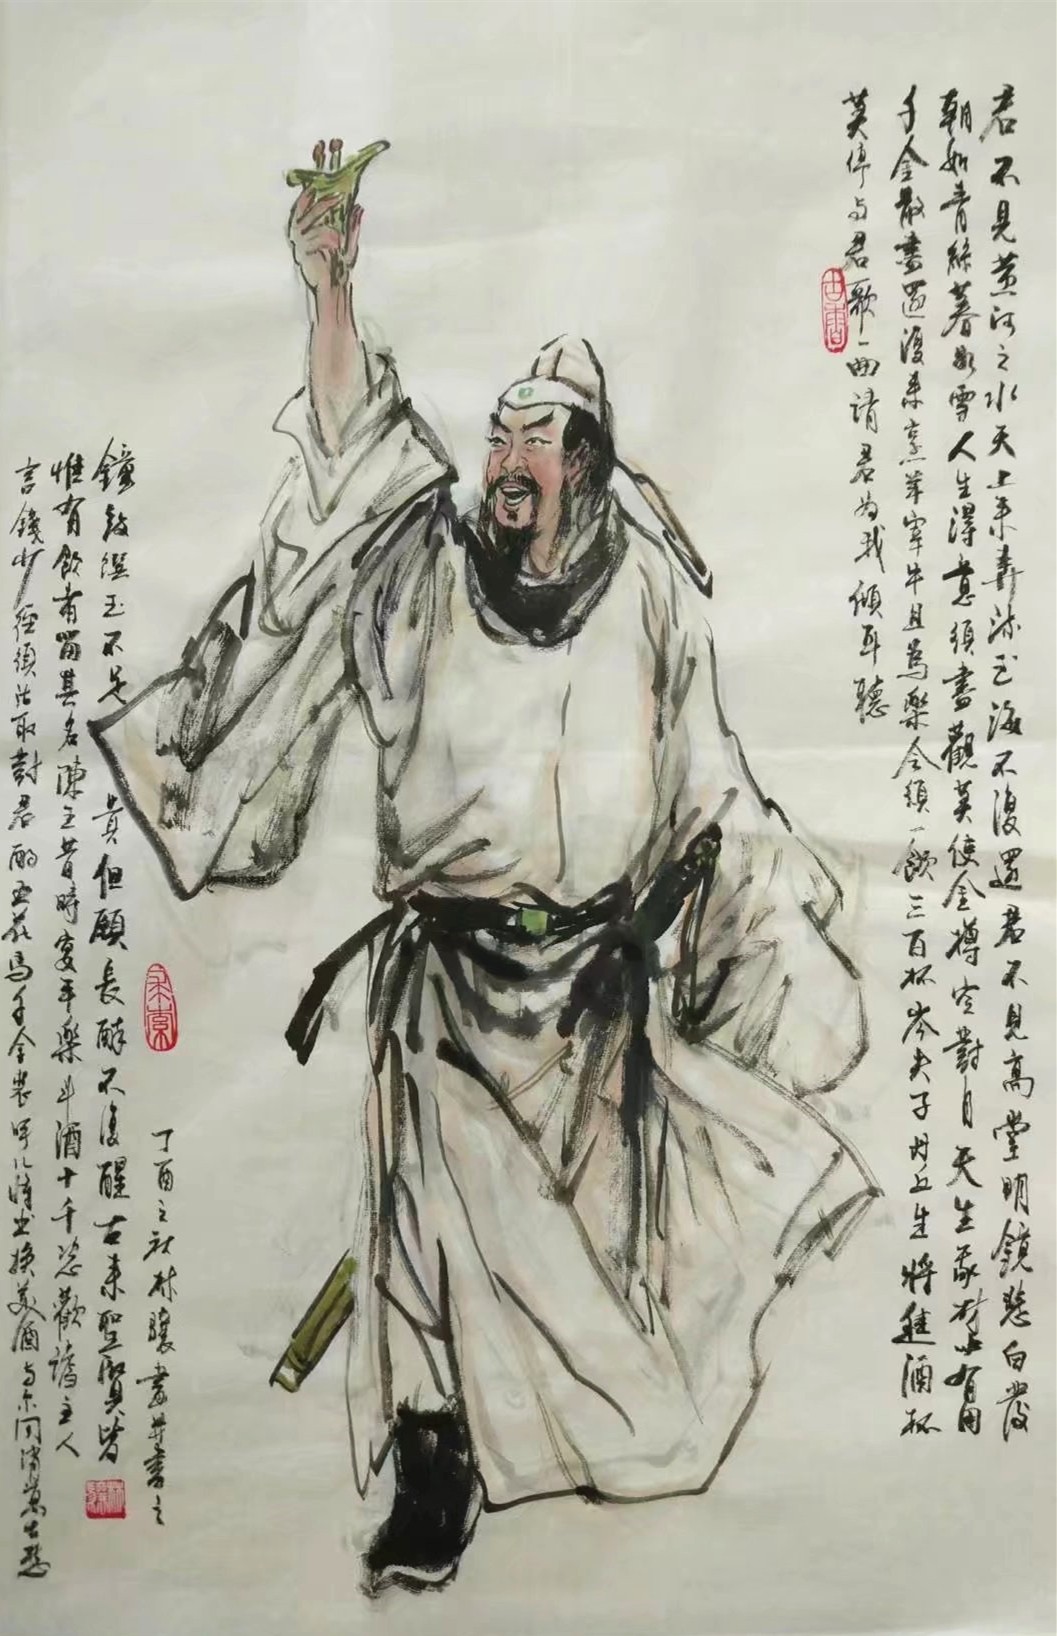 君不見黄河之水天上来奔流至海不復還君不見高堂明鏡悲白髮
朝如青絲暮如雪人生得意須盡觀莫使金樽空對月天生我材必有用
千金散盡還復来烹羊宰牛且爲樂会須一飲三百杯岑夫子丹丘生将進酒杯
莫停与君歌一曲請君为我傾耳聽
鐘鼓饌玉不足貴但願長醉不復醒古来聖賢皆
惟有飲者留其名陳王昔時宴平樂斗酒十千恣歡謔主人
言錢少徑須沽取對君酌五花馬千金裘呼儿将出换美酒与尔同消萬古愁
丁酉之秋林驤畫并書之